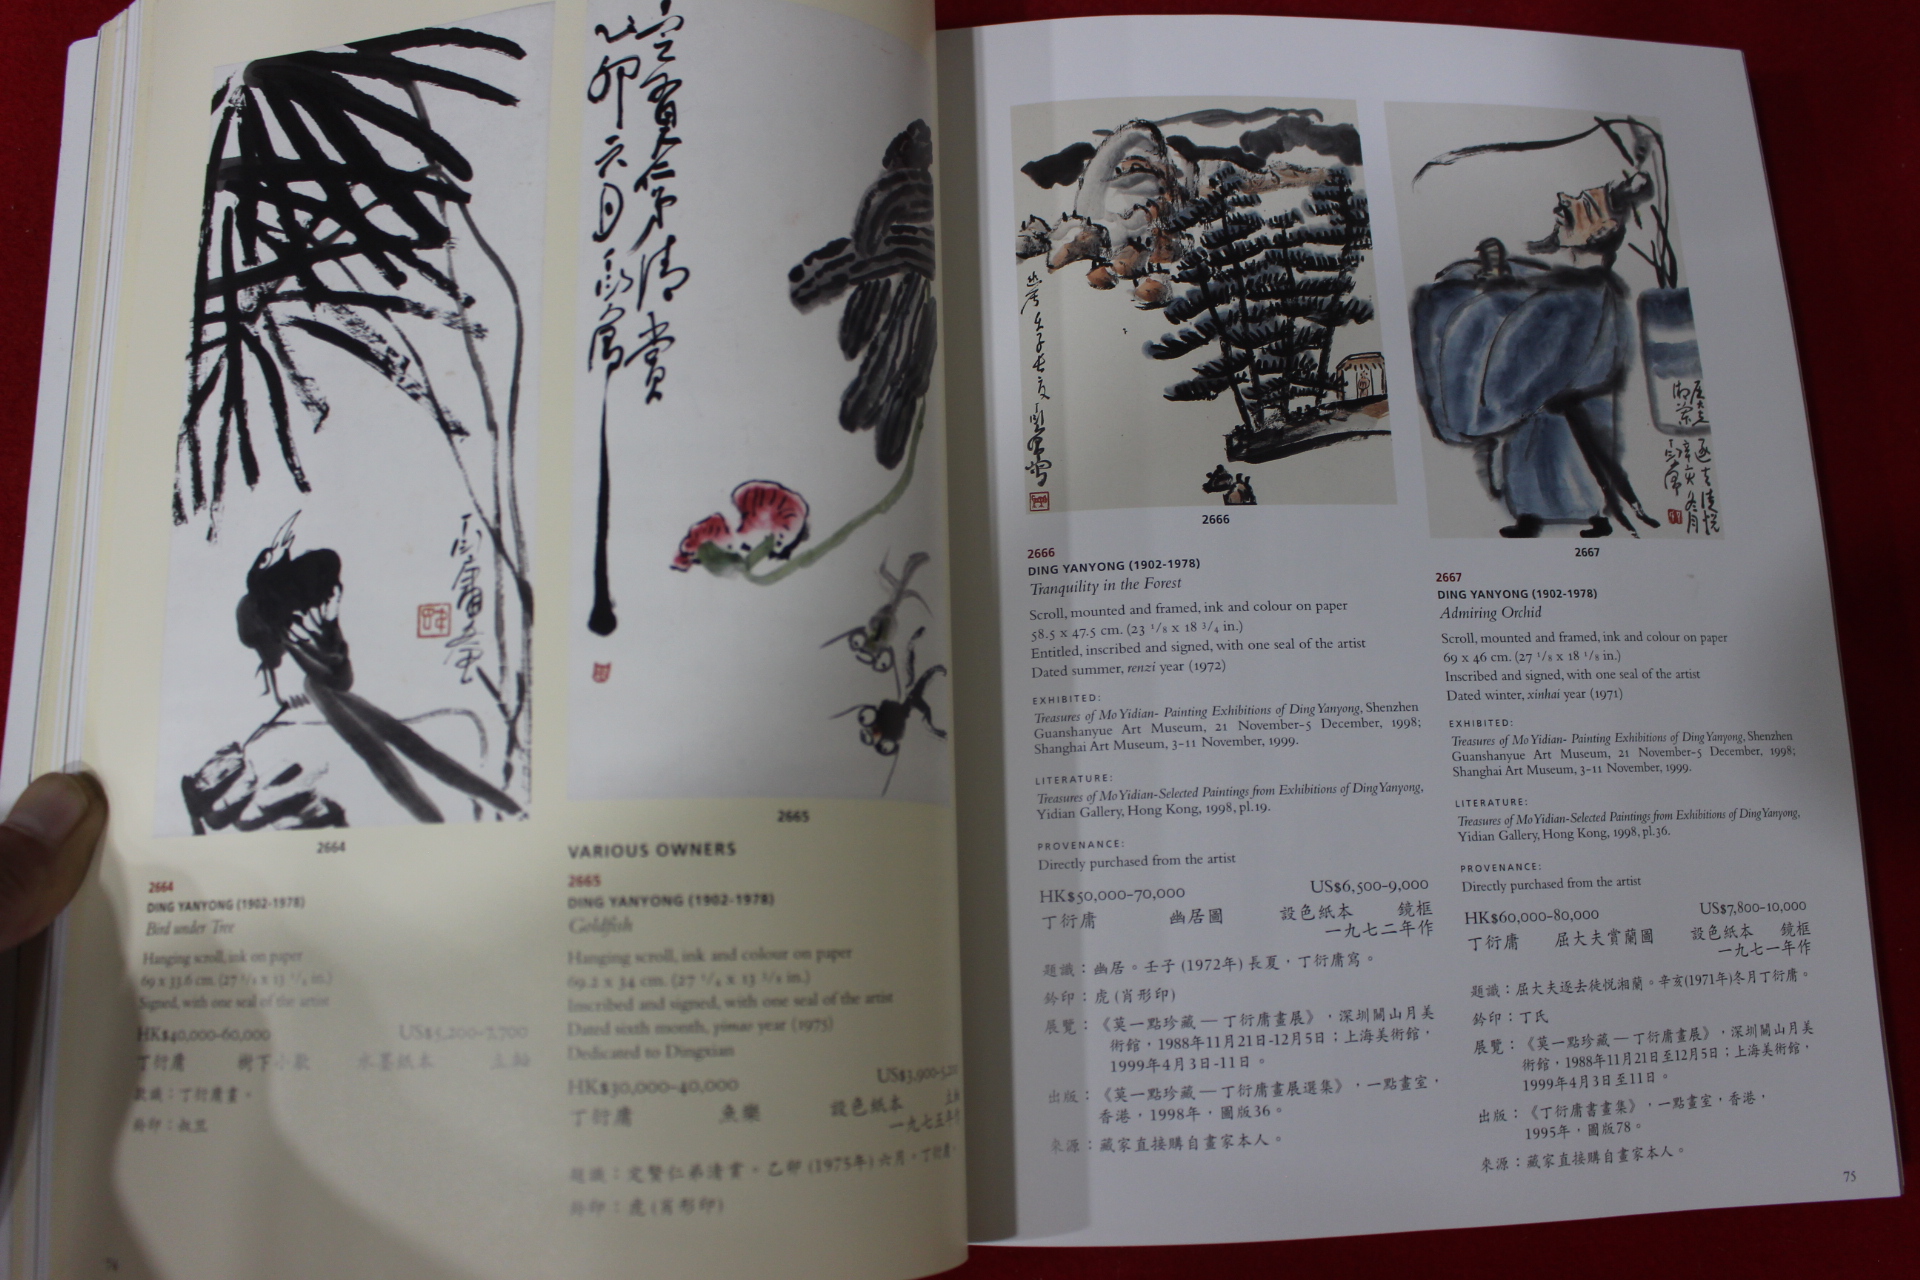 乙卯六月丁衍庸寫
定賢仁弟清賞
丁衍庸畫
2664
2665
2664
DING YANYONG (1902-1978)
Bird under Tree
Hanging scroll, ink on paper
69 x 33.6 cm. (27
in.)
Signed, with one seal of the artist
HK$40,000-60,000 US$5,200-7,700
丁衍庸 樹下小歇 水墨紙本 立軸
款識：丁衍庸畫。
鈐印：叔旦
74
VARIOUS OWNERS
2665
DING YANYONG (1902-1978)
Goldfish
Hanging scroll, ink and colour on paper
69.2 x 34 cm. (27 1/4 x 13 3/8 in.)
Inscribed and signed, with one seal of the artist
Dated sixth month, yimao year (1975)
Dedicated to Dingxian
HK$30,000-40,000 US$3,900-5,
丁衍庸 魚樂 設色紙本
一九七五年
題識：定賢仁弟清賞。乙卯 (1975年) 六月，丁衍庸
鈐印：虎 (肖形印)
幽居 壬子長夏 丁衍庸寫
2666
2666
DING YANYONG (1902-1978)
Tranquility in the Forest
Scroll, mounted and framed, ink and colour on paper
58.5 x 47.5 cm. (23 1/8 x 18 3/4 in.)
Entitled, inscribed and signed, with one seal of the artist
Dated summer, renzi year (1972)
EXHIBITED:
Treasures of Mo Yidian- Painting Exhibitions of Ding Yanyong, Shenzhen
Guanshanyue Art Museum, 21 November-5 December, 1998;
Shanghai Art Museum, 3-11 November, 1999.
LITERATURE:
Treasures of Mo Yidian-Selected Paintings from Exhibitions of Ding Yanyong,
Yidian Gallery, Hong Kong, 1998, pl.19.
PROVENANCE:
Directly purchased from the artist
HK$50,000-70,000 US$6,500-9,000
丁衍庸 幽居圖 設色紙本 鏡框
一九七二年作
題識：幽居。壬子 (1972年) 長夏，丁衍庸寫。
鈐印：虎 (肖形印)
展覽：《莫一點珍藏 — 丁衍庸畫展》，深圳關山月美
術館，1988年11月21日-12月5日；上海美術館，
1999年4月3日-11日。
出版：《莫一點珍藏 — 丁衍庸畫展選集》，一點畫室，
香港，1998年，圖版36。
來源：藏家直接購自畫家本人。
屈大夫逐去徒悅
湘蘭 辛亥冬月
丁衍庸
2667
2667
DING YANYONG (1902-1978)
Admiring Orchid
Scroll, mounted and framed, ink and colour on paper
69 x 46 cm. (27 1/8 x 18 1/8 in.)
Inscribed and signed, with one seal of the artist
Dated winter, xinhai year (1971)
EXHIBITED:
Treasures of Mo Yidian- Painting Exhibitions of Ding Yanyong, Shenzhen
Guanshanyue Art Museum, 21 November-5 December, 1998;
Shanghai Art Museum, 3-11 November, 1999.
LITERATURE:
Treasures of Mo Yidian-Selected Paintings from Exhibitions of Ding Yanyong,
Yidian Gallery, Hong Kong, 1998, pl.36.
PROVENANCE:
Directly purchased from the artist
HK$60,000-80,000 US$7,800-10,000
丁衍庸 屈大夫賞蘭圖 設色紙本 鏡框
一九七一年作
題識：屈大夫逐去徒悅湘蘭。辛亥(1971年)冬月丁衍庸。
鈐印：丁氏
展覽：《莫一點珍藏 — 丁衍庸畫展》，深圳關山月美
術館，1988年11月21日至12月5日；上海美術館，
1999年4月3日至11日。
出版：《丁衍庸書畫集》，一點畫室，香港，
1995年，圖版78。
來源：藏家直接購自畫家本人。
75